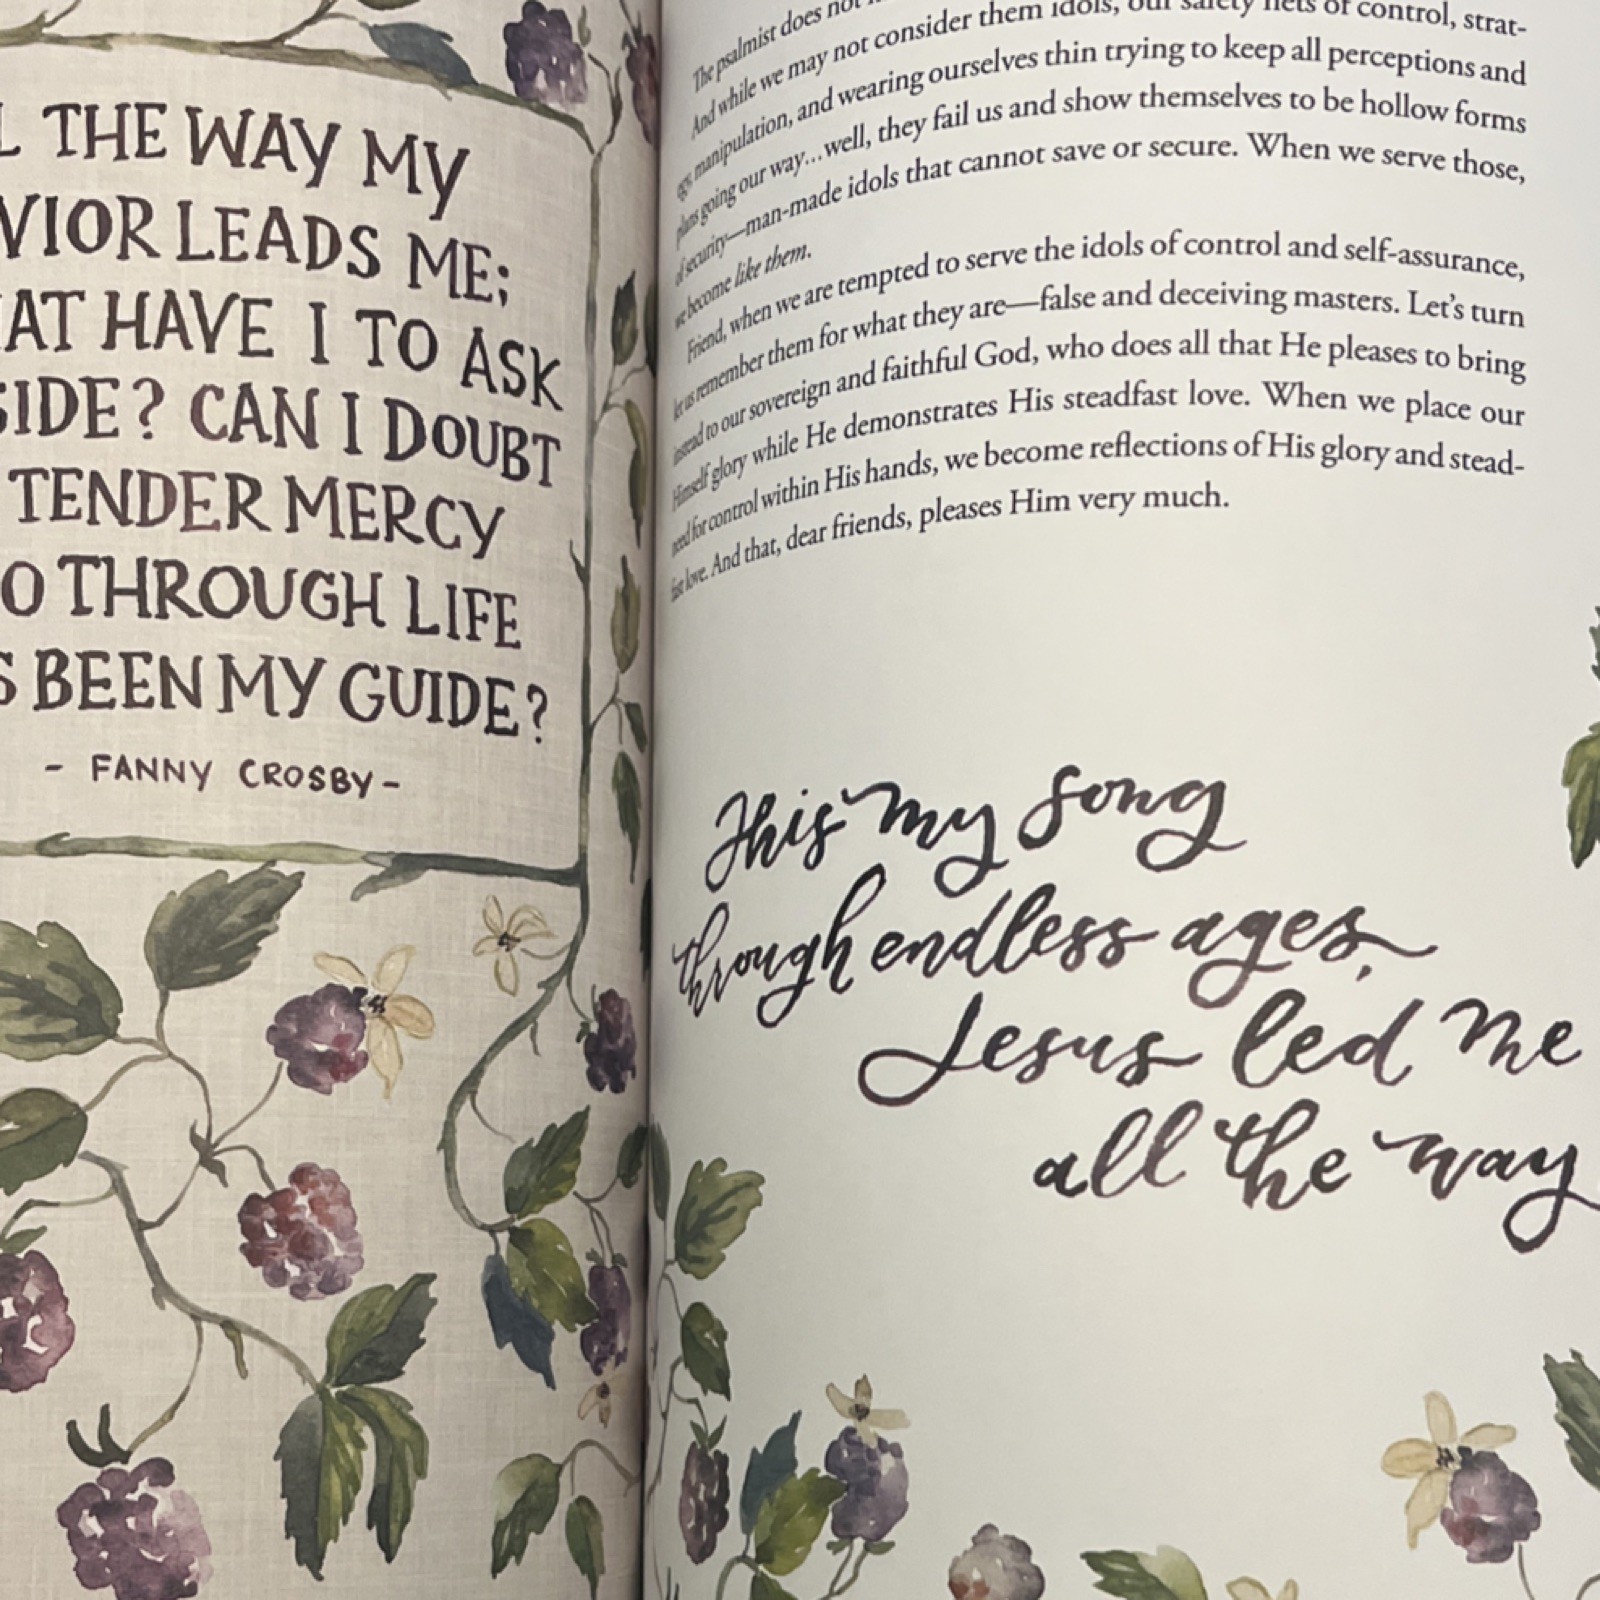 L THE WAY MY
VIOR LEADS ME;
AT HAVE I TO ASK
SIDE? CAN I DOUBT
TENDER MERCY
O THROUGH LIFE
S BEEN MY GUIDE?
- FANNY CROSBY -
The psalmist does not
And while we may not consider them idols, our safety nets of control, strat-
egy, manipulation, and wearing ourselves thin trying to keep all perceptions and
plans going our way...well, they fail us and show themselves to be hollow forms
of security—man-made idols that cannot save or secure. When we serve those,
we become like them.
Friend, when we are tempted to serve the idols of control and self-assurance,
let us remember them for what they are—false and deceiving masters. Let's turn
instead to our sovereign and faithful God, who does all that He pleases to bring
Himself glory while He demonstrates His steadfast love. When we place our
need for control within His hands, we become reflections of His glory and stead-
fast love. And that, dear friends, pleases Him very much.
This my song
through endless ages,
Jesus led me
all the way